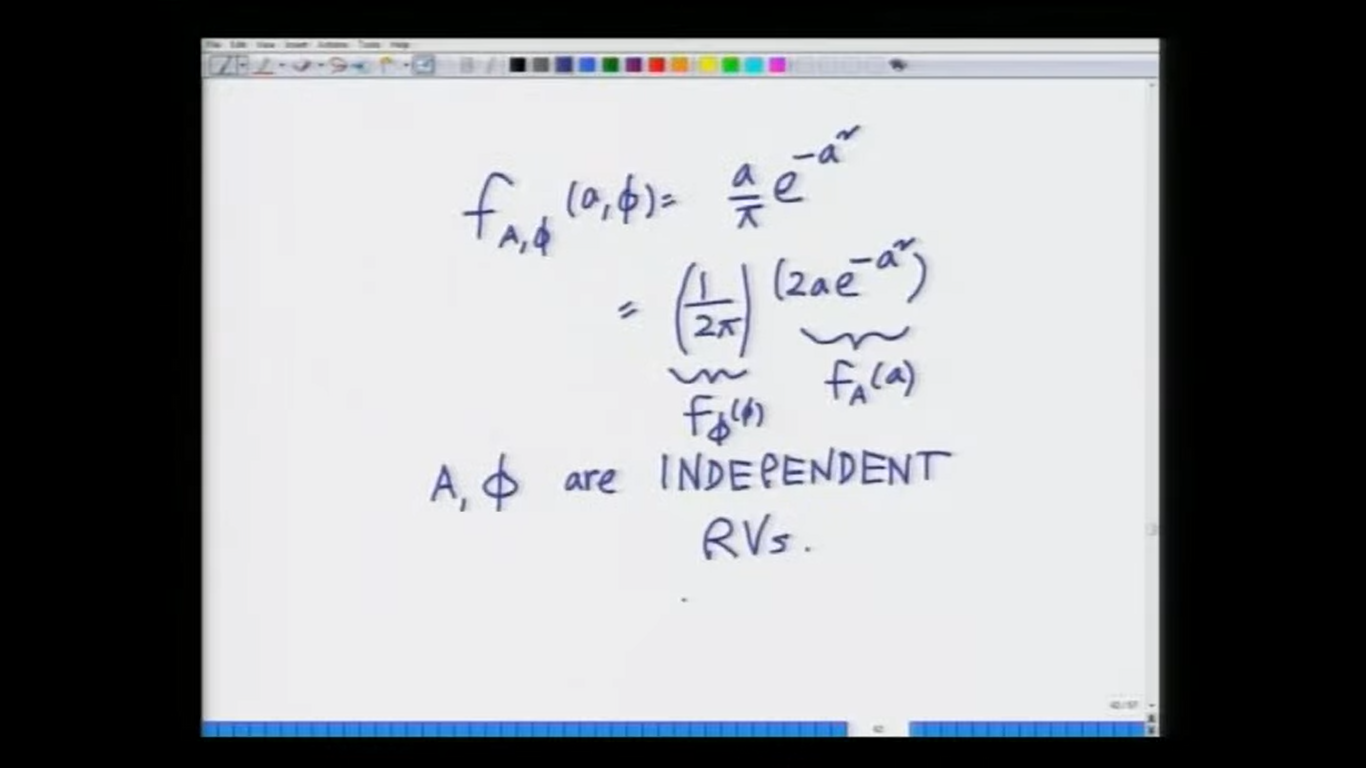 File Edit View Insert Actions Tools Help
f_{A,ϕ}(a,ϕ) = a/π e^{-a²}
= (1/2π) (2ae^{-a²})
f_ϕ(ϕ) f_A(a)
A, ϕ are INDEPENDENT
RVs.